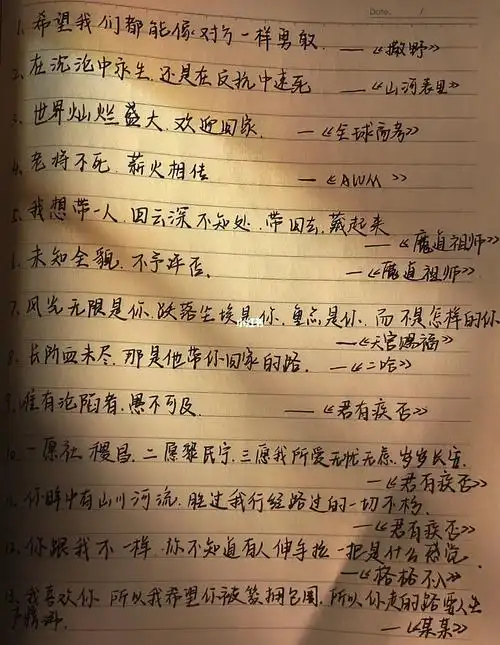 Date. /
1. 希望我们都能像对方一样勇敢. ——《撒野》
2. 在沉沦中永生, 还是在反抗中速死 ——《山河表里》
3. 世界灿烂盛大, 欢迎回家. —《全球高考》
4. 老将不死, 薪火相传 —《AWM》
5. 我想带一人, 回云深不知处, 带回去, 藏起来
——《魔道祖师》
6. 未知全貌, 不予评否. —《魔道祖师》
7. 风光无限是你, 跌落尘埃是你, 重点是你, 而不是怎样的你
——《天官赐福》
8. 长阶血未尽, 那是他带你回家的路. —《二哈》
9. 唯有沦陷者, 愚不可及. ——《君有疾否》
10. 一愿社稷昌, 二愿黎民宁, 三愿我所爱无忧无虑, 岁岁长安.
—《君有疾否》
11. 你眸中有山川河流, 胜过我行经路过的一切不朽.
—《君有疾否》
12. 你跟我不一样, 你不知道有人伸手拉一把是什么感觉.
—《格格不入》
13. 我喜欢你, 所以我希望你被簇拥包围, 所以你走的路要人声
鼎沸. —《某某》